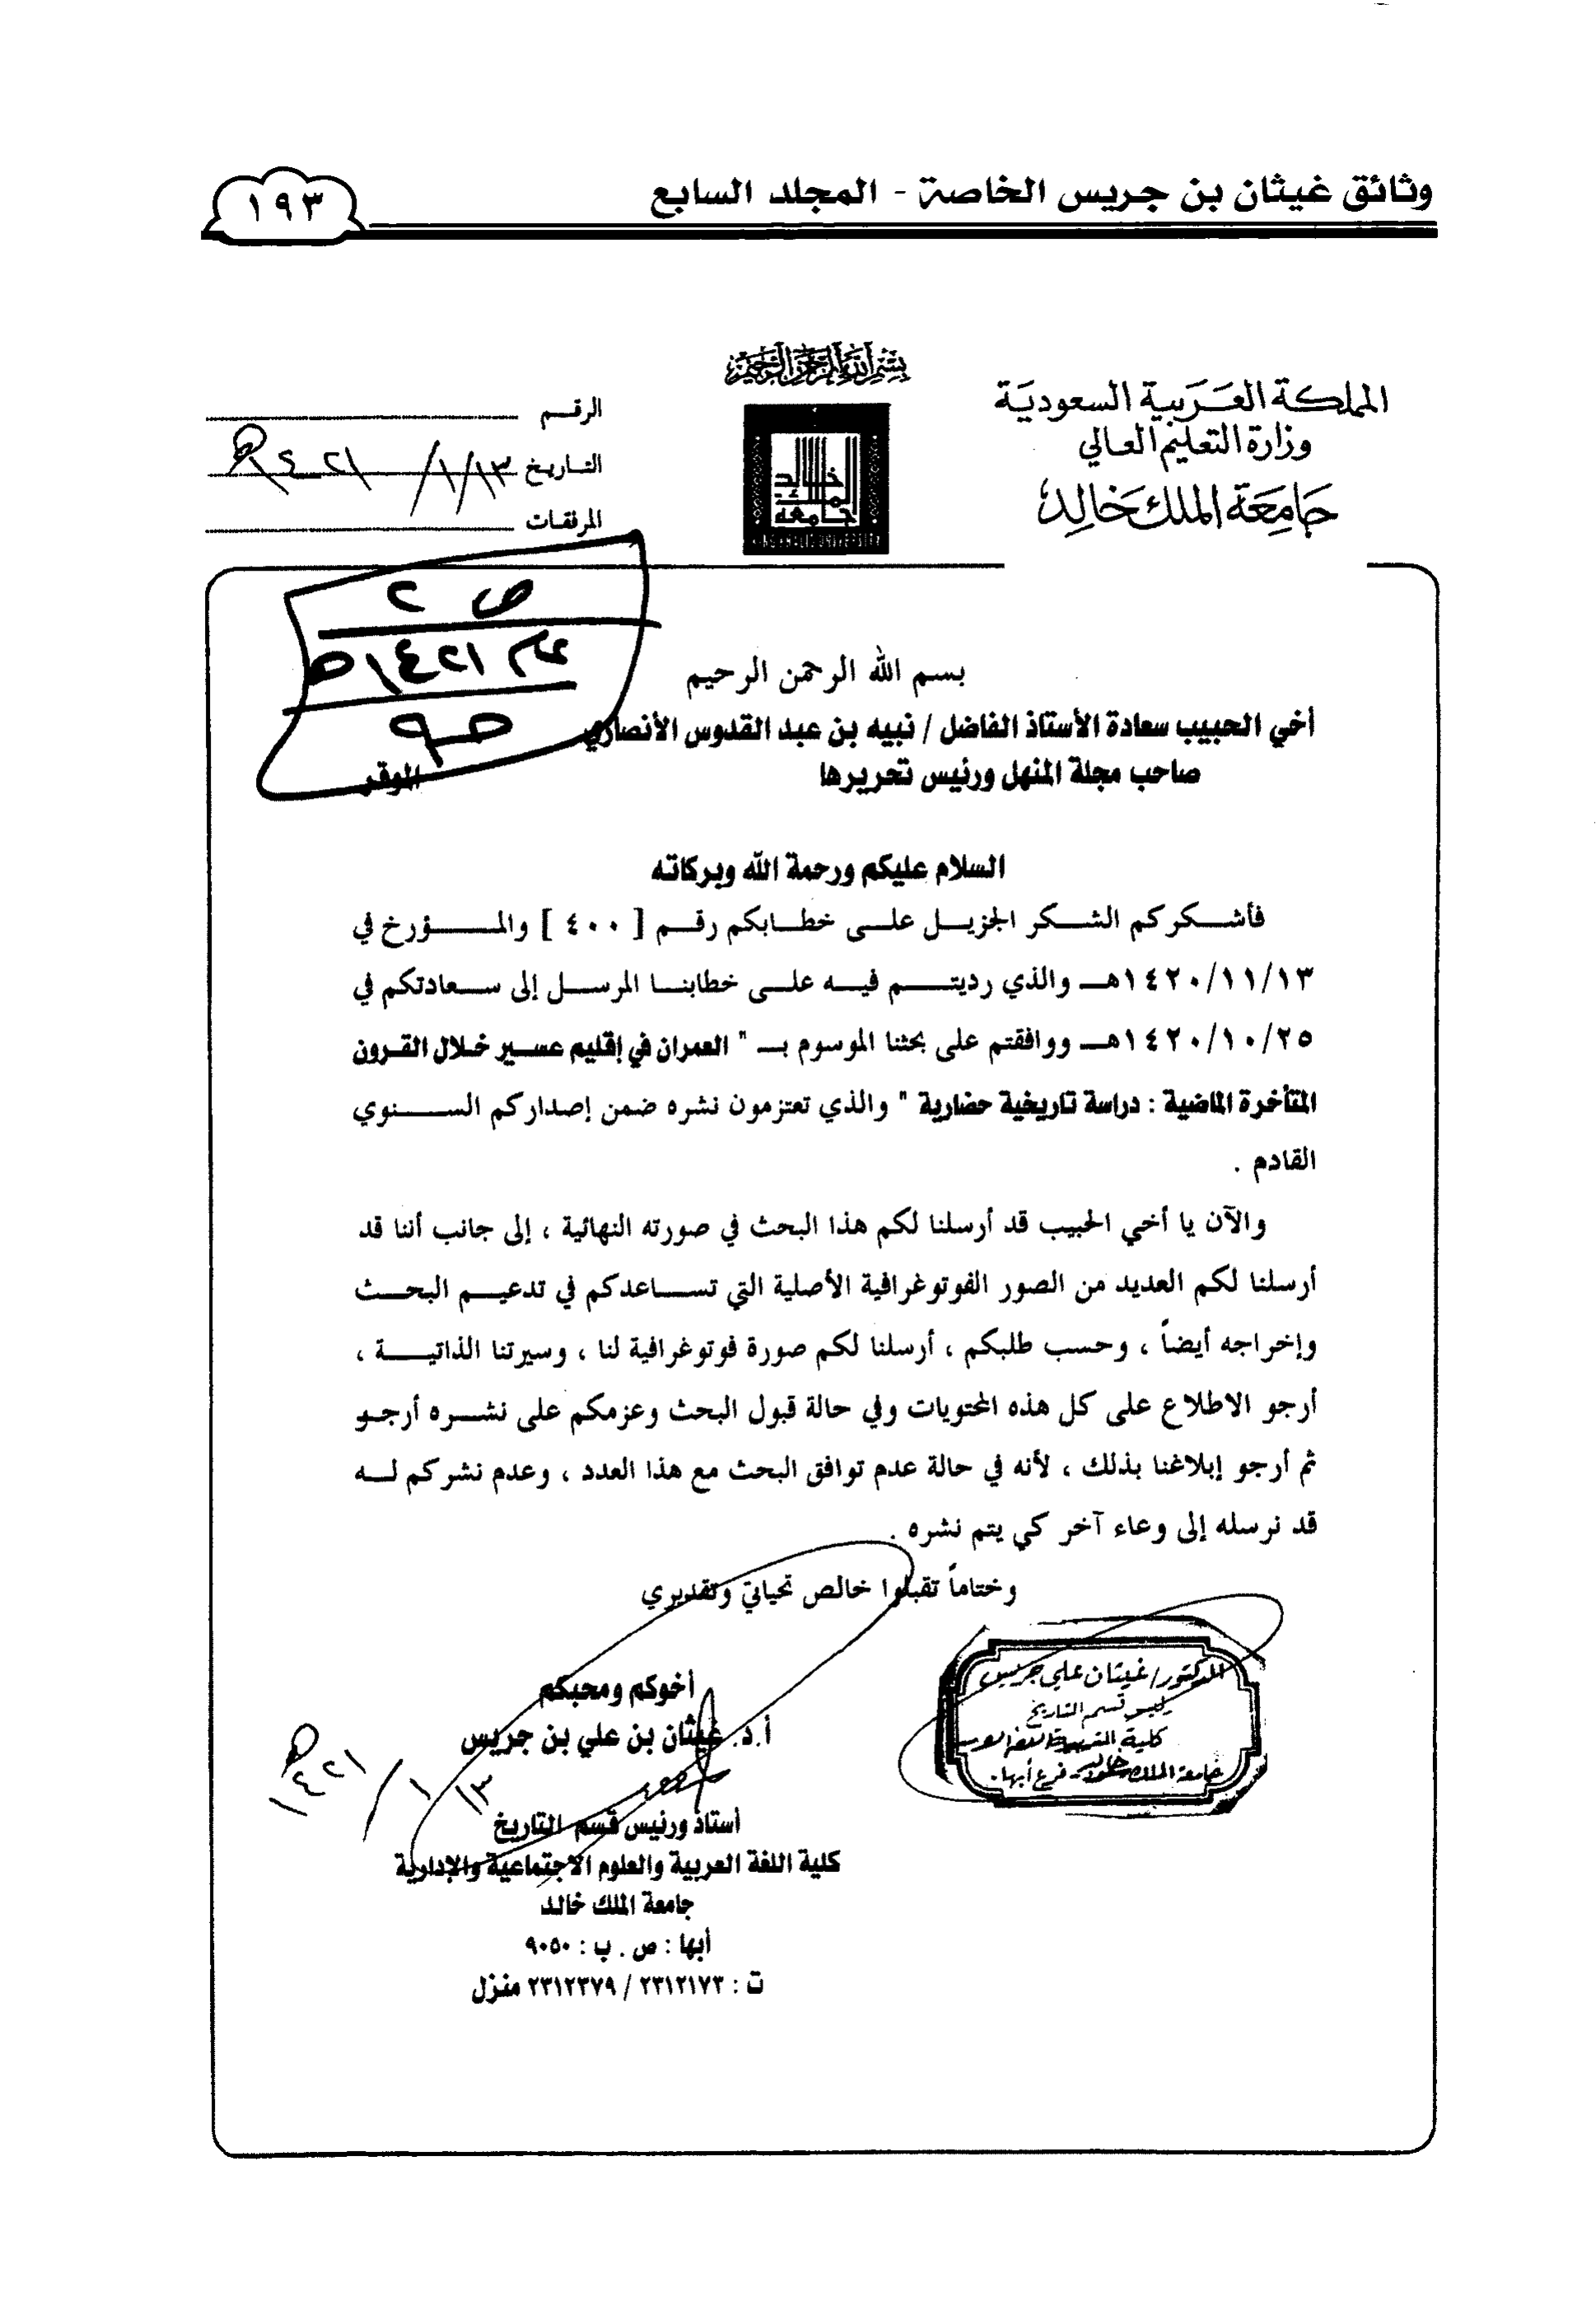 وثائق غيثان بن جريس الخاصة - المجلد السابع
١٩٣
بسم الله الرحمن الرحيم
المملكة العربية السعودية
وزارة التعليم العالي
جامعة الملك خالد
جامعة
الملك
خالد
KING KHALID UNIVERSITY
الرقم
التاريخ ١٣/١/١٤٢١هـ
المرفقات
ص ٢
عام ١٤٢١هـ
بسم الله الرحمن الرحيم
أخي الحبيب سعادة الأستاذ الفاضل / نبيه بن عبد القدوس الأنصاري
صاحب مجلة المنهل ورئيس تحريرها الموقر
السلام عليكم ورحمة الله وبركاته
فأشكركم الشكر الجزيل على خطابكم رقم [ ٤٠٠ ] والمؤرخ في
١٤٢٠/١١/١٣هـ والذي رديتم فيه على خطابنا المرسل إلى سعادتكم في
١٤٢٠/١٠/٢٥هـ ووافقتم على بحثنا الموسوم بـ " العمران في إقليم عسير خلال القرون
المتأخرة الماضية : دراسة تاريخية حضارية " والذي تعتزمون نشره ضمن إصداركم السنوي
القادم .
والآن يا أخي الحبيب قد أرسلنا لكم هذا البحث في صورته النهائية ، إلى جانب أننا قد
أرسلنا لكم العديد من الصور الفوتوغرافية الأصلية التي تساعدكم في تدعيم البحث
وإخراجه أيضاً ، وحسب طلبكم ، أرسلنا لكم صورة فوتوغرافية لنا ، وسيرتنا الذاتية ،
أرجو الاطلاع على كل هذه المحتويات وفي حالة قبول البحث وعزمكم على نشره أرجو
ثم أرجو إبلاغنا بذلك ، لأنه في حالة عدم توافق البحث مع هذا العدد ، وعدم نشركم له
قد نرسله إلى وعاء آخر كي يتم نشره .
وختاماً تقبلوا خالص تحياتي وتقديري
أخوكم ومحبكم
أ.د. غيثان بن علي بن جريس
١٣/١/١٤٢١هـ
أستاذ ورئيس قسم التاريخ
كلية اللغة العربية والعلوم الاجتماعية والإدارية
جامعة الملك خالد
أبها : ص . ب : ٩٠٥٠
ت : ٢٣١٢١٧٣ / ٢٣١٢٣٧٩ منزل
الدكتور/ غيثان علي جريس
رئيس قسم التاريخ
كلية
جامعة الملك خالد - فرع أبها.